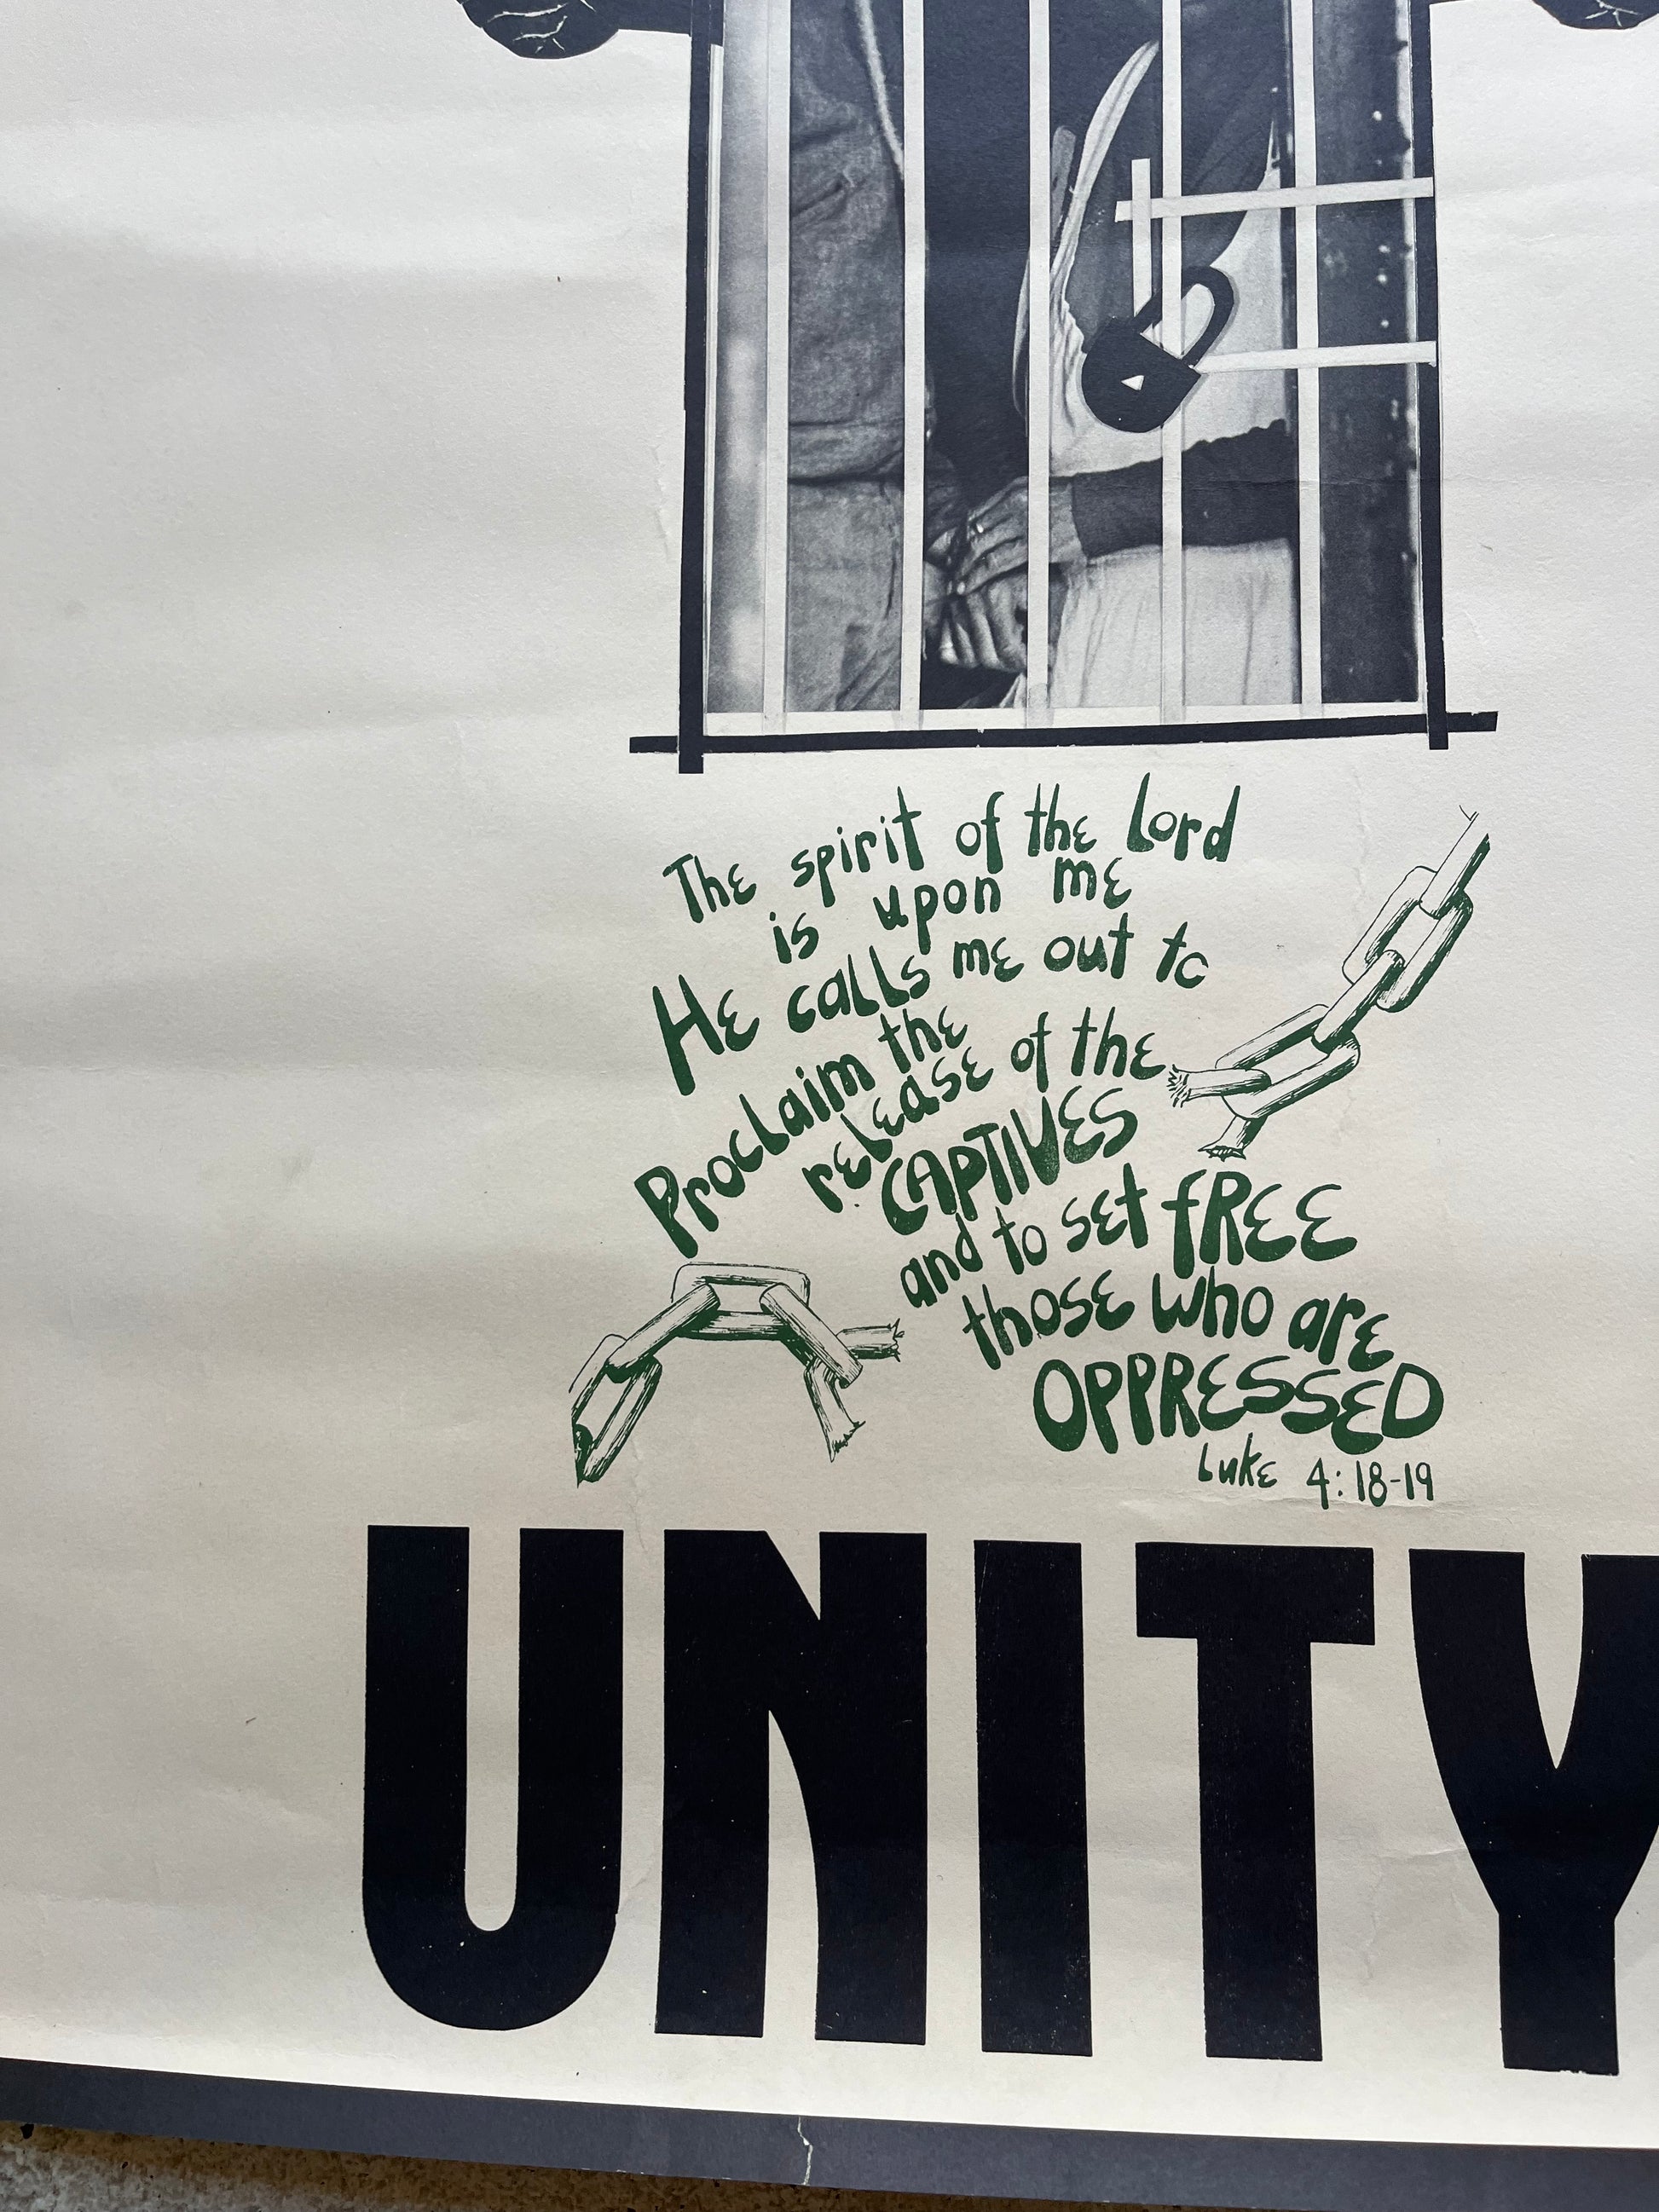 The spirit of the Lord
is upon me
He calls me out to
Proclaim the
release of the
CAPTIVES
and to set fREE
those who are
OPPRESSED
Luke 4:18-19
UNITY